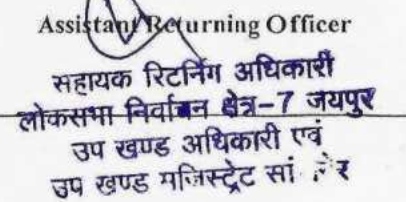 Assistant Returning Officer
सहायक रिटर्निंग अधिकारी
लोकसभा निर्वाचन क्षेत्र-7 जयपुर
उप खण्ड अधिकारी एवं
उप खण्ड मजिस्ट्रेट